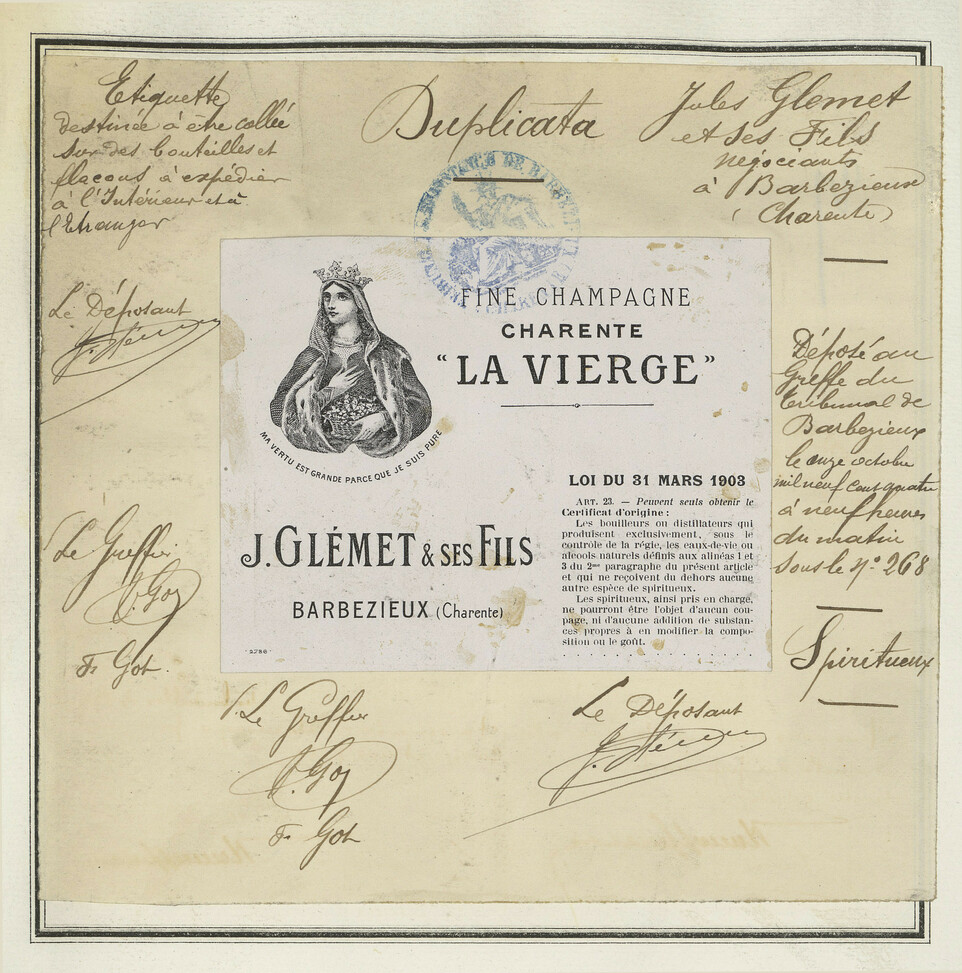 Etiquette
destinée à être collée
sur des bouteilles et
flacons à expédier
à l'Intérieur et à
l'Etranger
Duplicata
Jules Glemet
et ses Fils
négociants
à Barbezieux
(Charente)
Le Déposant
FINE CHAMPAGNE
CHARENTE
“LA VIERGE”
MA VERTU EST GRANDE PARCE QUE JE SUIS PURE
LOI DU 31 MARS 1903
ART. 23. — Peuvent seuls obtenir le
Certificat d'origine :
Les bouilleurs ou distillateurs qui
produisent exclusivement, sous le
contrôle de la régie, les eaux-de-vie ou
alcools naturels définis aux alinéas 1 et
3 du 2me paragraphe du présent article
et qui ne reçoivent du dehors aucune
autre espèce de spiritueux.
Les spiritueux, ainsi pris en charge,
ne pourront être l'objet d'aucun cou-
page, ni d'aucune addition de substan-
ces propres à en modifier la compo-
sition ou le goût.
J. GLÉMET & SES FILS
BARBEZIEUX (Charente)
·2786·
Déposé au
Greffe du
tribunal de
Barbezieux
le onze octobre
mil neuf cent quatre
à neuf heures
du matin
sous le N° 268
Spiritueux
Le Greffier
F. Got
Le Greffier
F. Got
Le Déposant